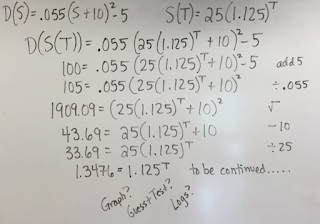 D(S)=.055(S+10)²-5 S(T)=25(1.125)^T
D(S(T))=.055(25(1.125)^T+10)²-5
100=.055(25(1.125)^T+10)²-5 add 5
105=.055(25(1.125)^T+10)² ÷.055
1909.09=(25(1.125)^T+10)² √
43.69=25(1.125)^T+10 -10
33.69=25(1.125)^T ÷25
1.3476=1.125^T to be continued.....
Graph?
Guess+Test?
Logs?